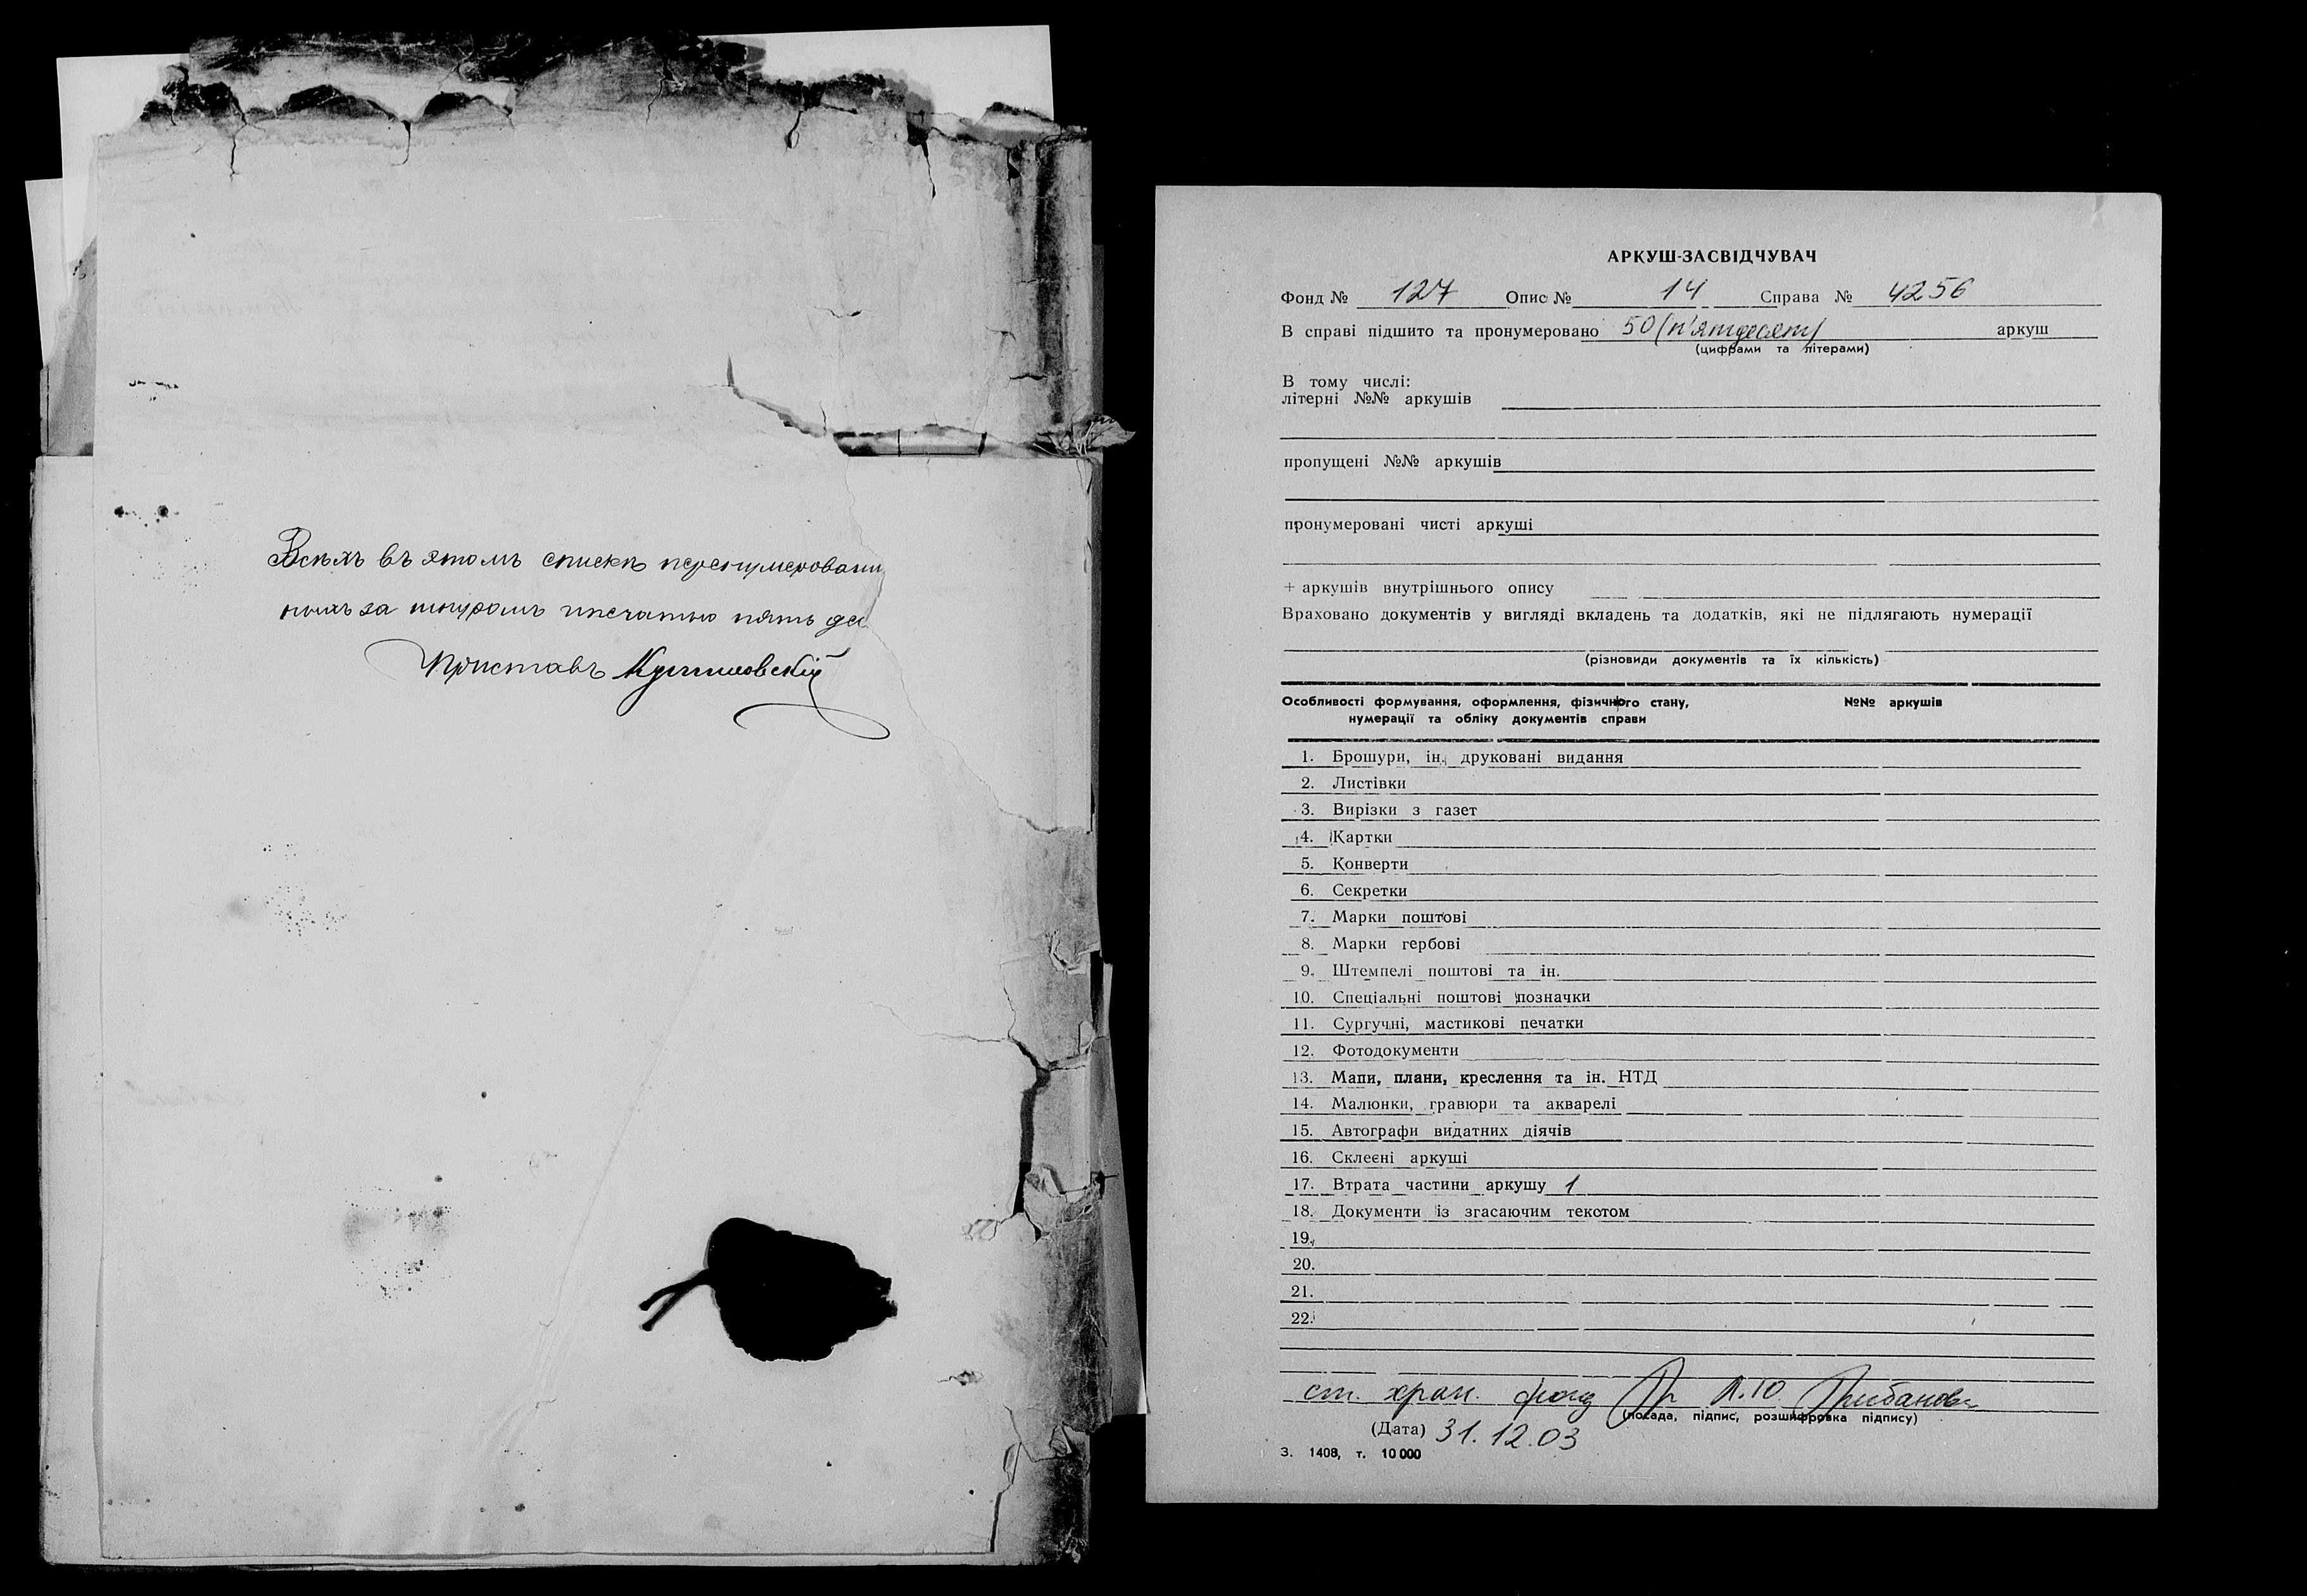 Всѣхъ въ этомъ спискѣ перенумерован
ныхъ за шнуромъ и печатью пять де
Приставъ
АРКУШ-ЗАСВІДЧУВАЧ
Фонд № 127 Опис № 14 Справа № 4256
В справі підшито та пронумеровано 50 (п'ятдесят) аркуш
(цифрами та літерами)
В тому числі:
літерні №№ аркушів
пропущені №№ аркушів
пронумеровані чисті аркуші
+ аркушів внутрішнього опису
Враховано документів у вигляді вкладень та додатків, які не підлягають нумерації
(різновиди документів та їх кількість)
Особливості формування, оформлення, фізичного стану, №№ аркушів
нумерації та обліку документів справи
1. Брошури, ін. друковані видання
2. Листівки
3. Вирізки з газет
4. Картки
5. Конверти
6. Секретки
7. Марки поштові
8. Марки гербові
9. Штемпелі поштові та ін.
10. Спеціальні поштові позначки
11. Сургучні, мастикові печатки
12. Фотодокументи
13. Мапи, плани, креслення та ін. НТД
14. Малюнки, гравюри та акварелі
15. Автографи видатних діячів
16. Склеєні аркуші
17. Втрата частини аркушу 1
18. Документи із згасаючим текстом
19.
20.
21.
22.
ст. хран. фонд
(посада, підпис, розшифровка підпису)
(Дата) 31.12.03
З. 1408, т. 10 000